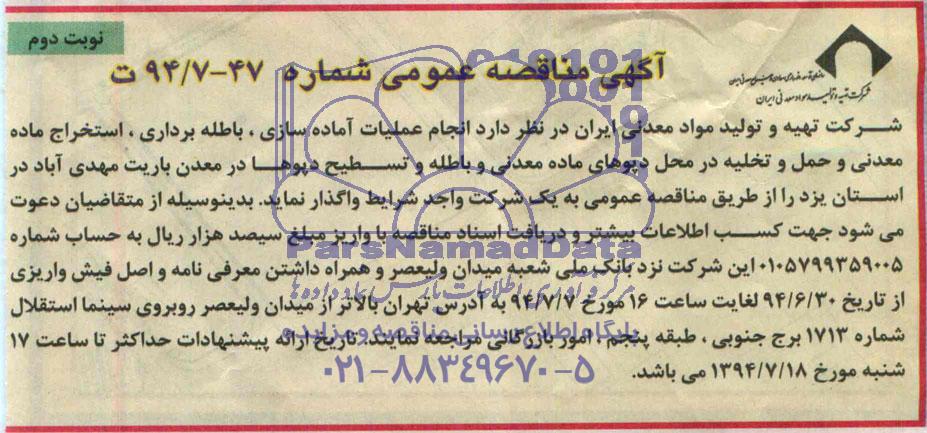 نوبت دوم
شرکت تهیه و تولید مواد معدنی ایران
آگهی مناقصه عمومی شماره ۴۷-۹۴/۷ ت
شرکت تهیه و تولید مواد معدنی ایران در نظر دارد انجام عملیات آماده سازی ، باطله برداری ، استخراج ماده
معدنی و حمل و تخلیه در محل دپوهای ماده معدنی و باطله و تسطیح دپوها در معدن باریت مهدی آباد در
استان یزد را از طریق مناقصه عمومی به یک شرکت واجد شرایط واگذار نماید. بدینوسیله از متقاضیان دعوت
می شود جهت کسب اطلاعات بیشتر و دریافت اسناد مناقصه با واریز مبلغ سیصد هزار ریال به حساب شماره
۰۱۰۵۷۹۹۳۵۹۰۰۵ این شرکت نزد بانک ملی شعبه میدان ولیعصر و همراه داشتن معرفی نامه و اصل فیش واریزی
از تاریخ ۹۴/۶/۳۰ لغایت ساعت ۱۶ مورخ ۹۴/۷/۷ به آدرس تهران بالاتر از میدان ولیعصر روبروی سینما استقلال
شماره ۱۷۱۳ برج جنوبی ، طبقه پنجم ، امور بازرگانی مراجعه نمایند. تاریخ ارائه پیشنهادات حداکثر تا ساعت ۱۷
شنبه مورخ ۱۳۹۴/۷/۱۸ می باشد.
ParsNamadData
مرکز فرآوری اطلاعات پارس نماد داده ها
پایگاه اطلاع رسانی مناقصه و مزایده
۰۲۱-۸۸۳۴۹۶۷۰-۵